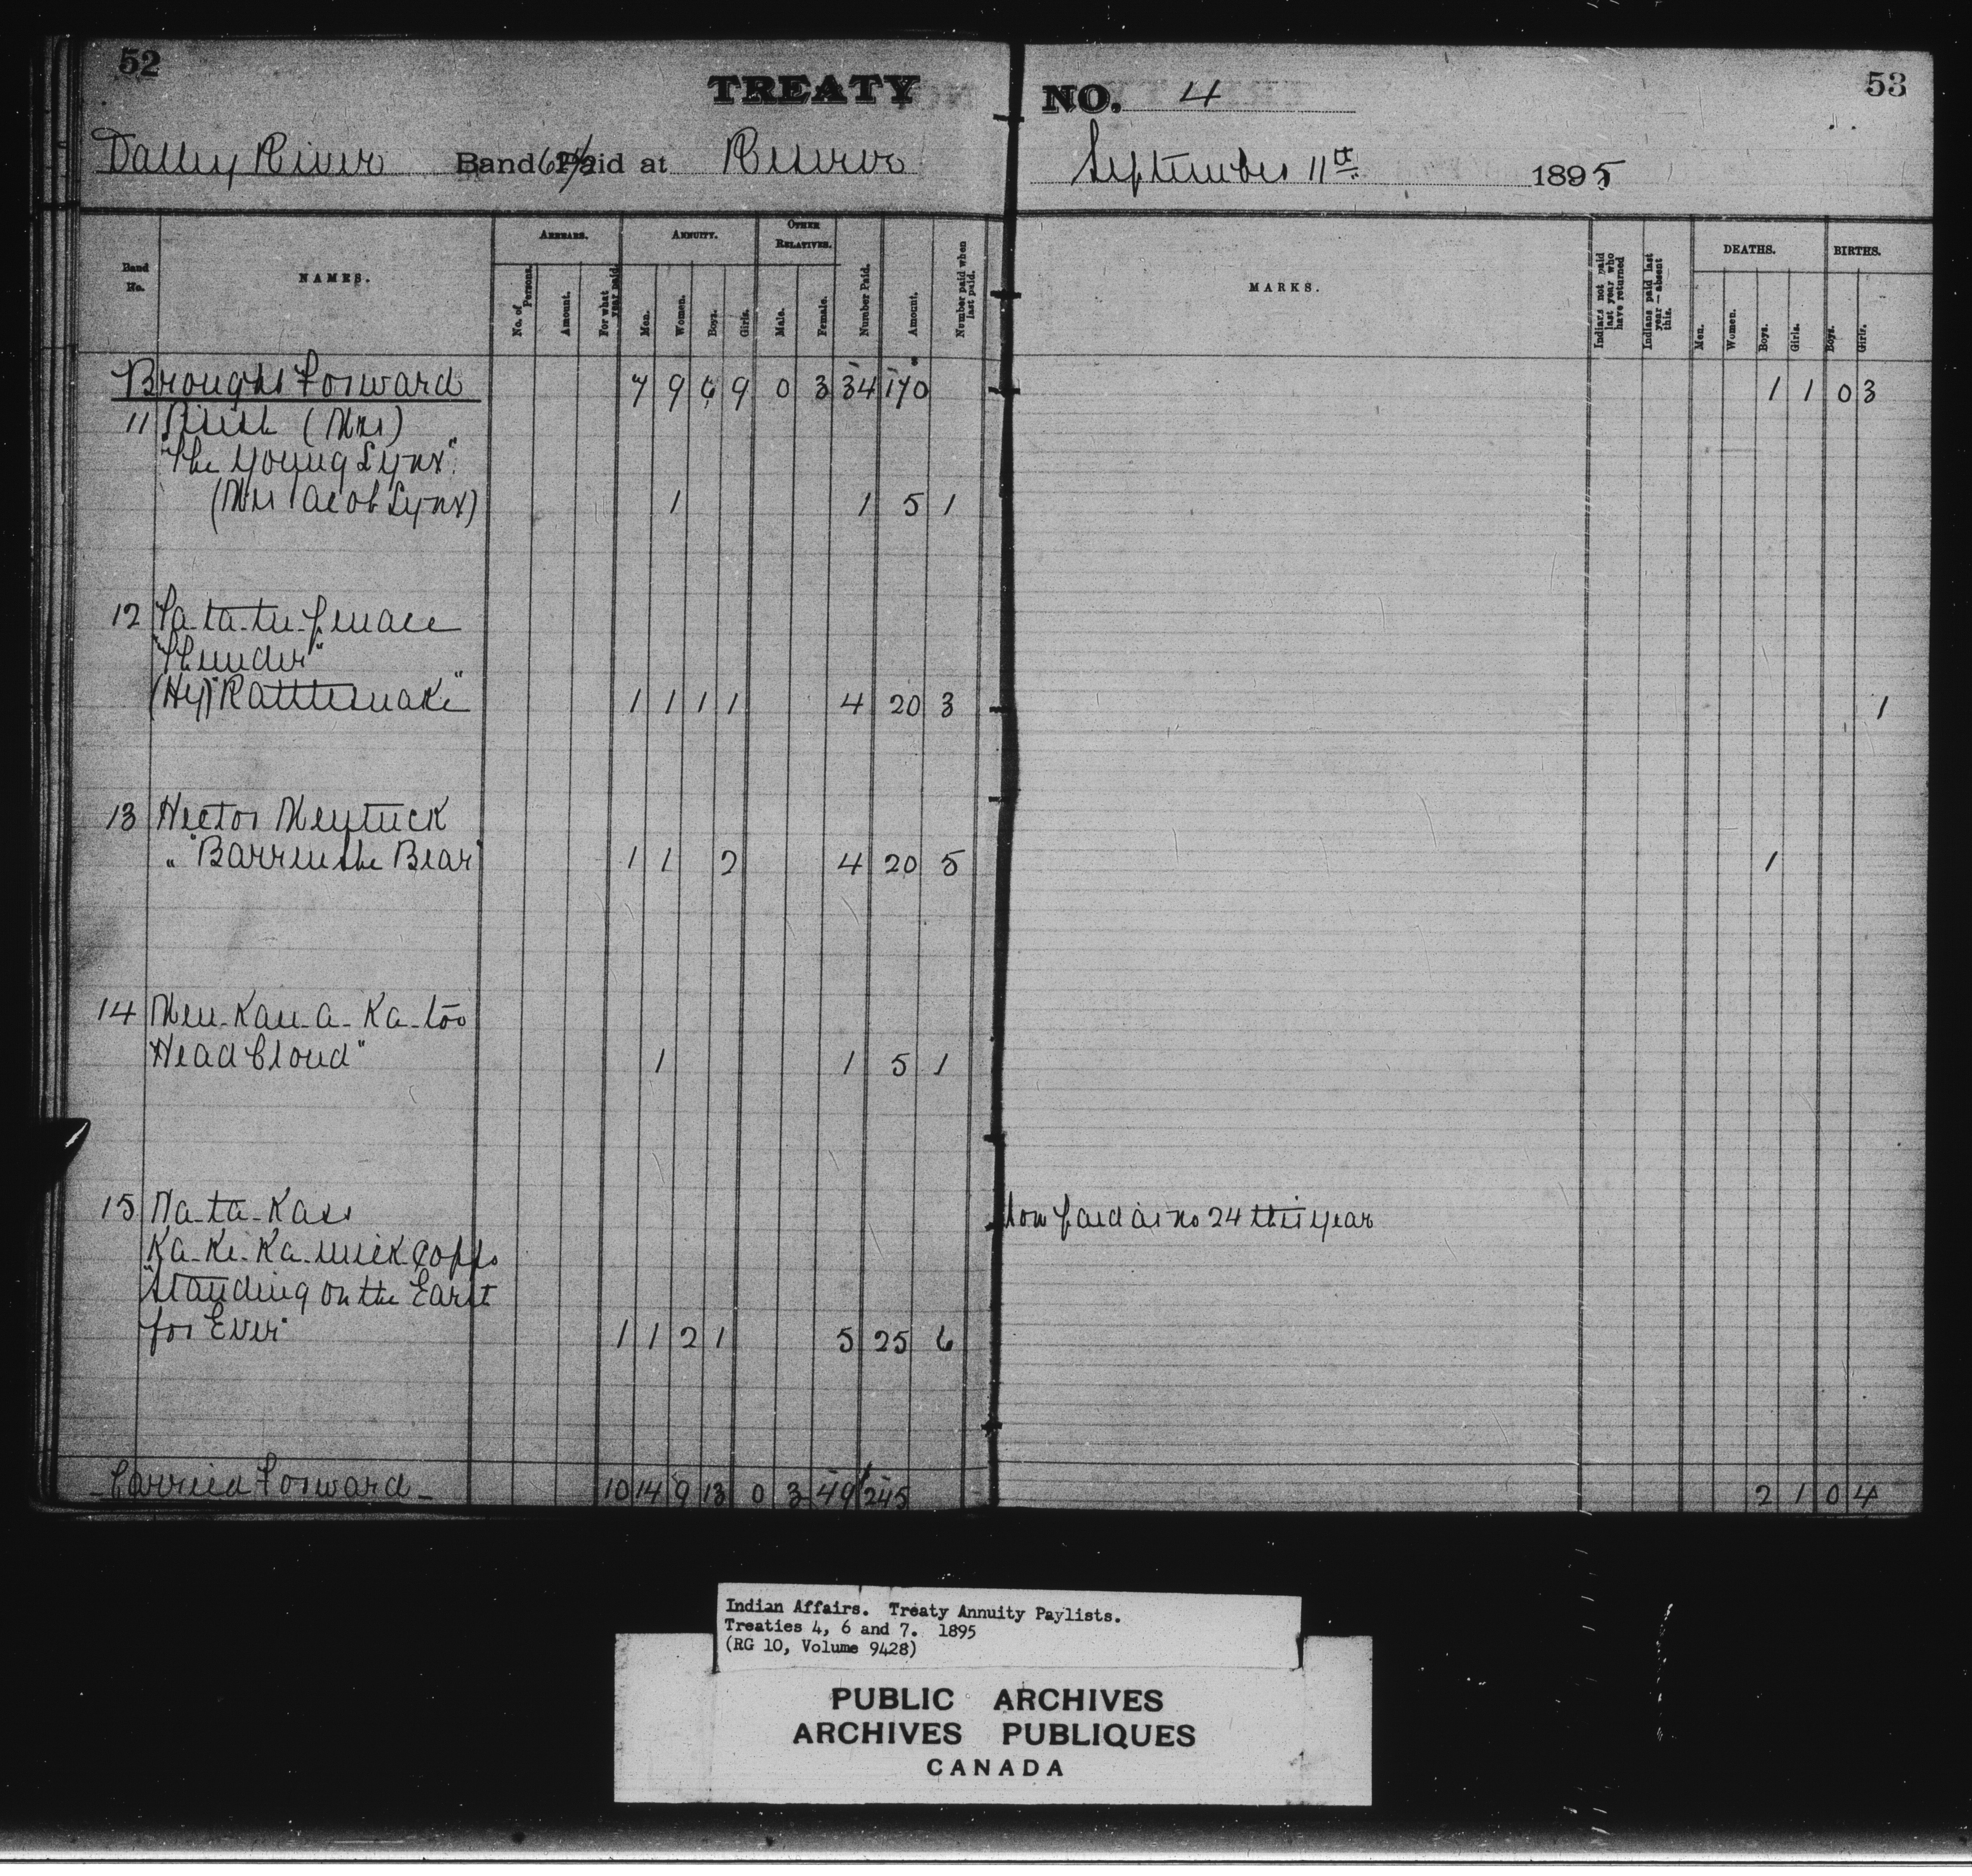 52
TREATY
NO. 4
53
Valley River Band 62½ Paid at Reserve
September 11th 1895
Band No.
NAMES.
ARREARS.
No. of Persons.
Amount.
For what year paid.
ANNUITY.
Men.
Women.
Boys.
Girls.
OTHER RELATIVES.
Male.
Female.
Number Paid.
Amount.
Number paid when last paid.
MARKS.
Indians not paid last year who have returned
Indians paid last year—absent this.
DEATHS.
Men.
Women.
Boys.
Girls.
BIRTHS.
Boys.
Girls.
Brought Forward 7 9 6 9 0 3 34 170 1 1 0 3
11 (Mrs)
"The Young Lynx"
(Mrs Jacob Lynx) 1 1 5 1
12 Pa-ta-te-penace
"Thunder"
(Hy) "Rattlesnake" 1 1 1 1 4 20 3 1
13 Hector Meytuck
" "Barren the Bear" 1 1 2 4 20 5 1
14 Men-Kan-a-Ka-too
Head Cloud" 1 1 5 1
15 Na-ta-Kass now paid as no 24 this year
Ka-Ke-Ka-mick-
"Standing on the Earth
for Ever" 1 1 2 1 5 25 6
Carried Forward 10 14 9 13 0 3 49 245 2 1 0 4
Indian Affairs. Treaty Annuity Paylists.
Treaties 4, 6 and 7. 1895
(RG 10, Volume 9428)
PUBLIC ARCHIVES
ARCHIVES PUBLIQUES
CANADA